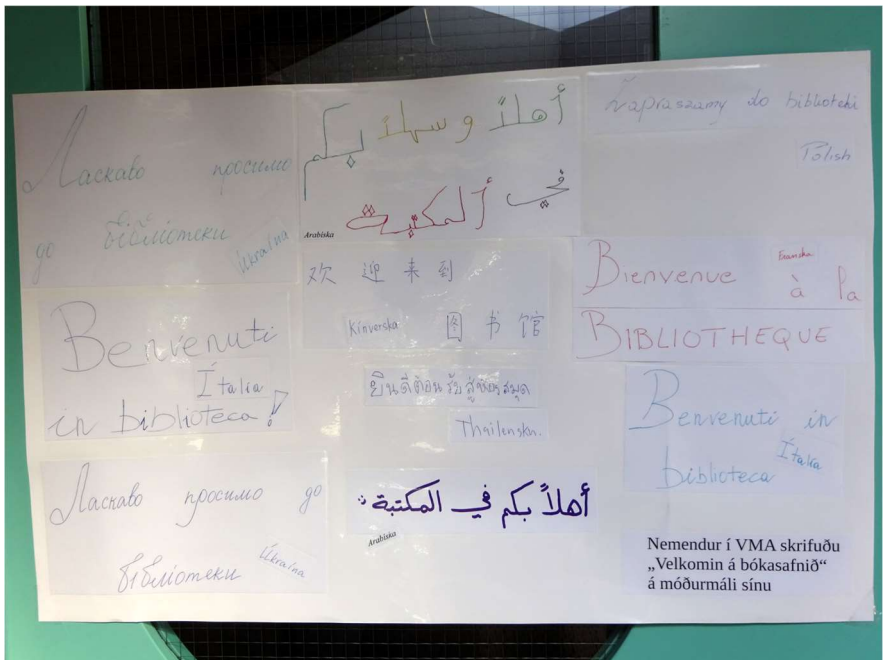 Ласкаво просимо
до бібліотеки
Úkraína
أهلاً و سهلاً بكم
في ألمكتبة
Arabíska
Zapraszamy do biblioteki
Pólish
欢迎来到
图书馆
Kínverska
Bienvenue à la
Franska
BIBLIOTHEQUE
Benvenuti
Ítalía
in biblioteca!
ยินดีต้อนรับสู่ห้องสมุด
Thaílenska.
Benvenuti in
Ítalía
biblioteca
Ласкаво просимо до
бібліотеки
Úkraína
أهلاً بكم في المكتبة
Arabíska
Nemendur í VMA skrifuðu
„Velkomin á bókasafnið“
á móðurmáli sínu